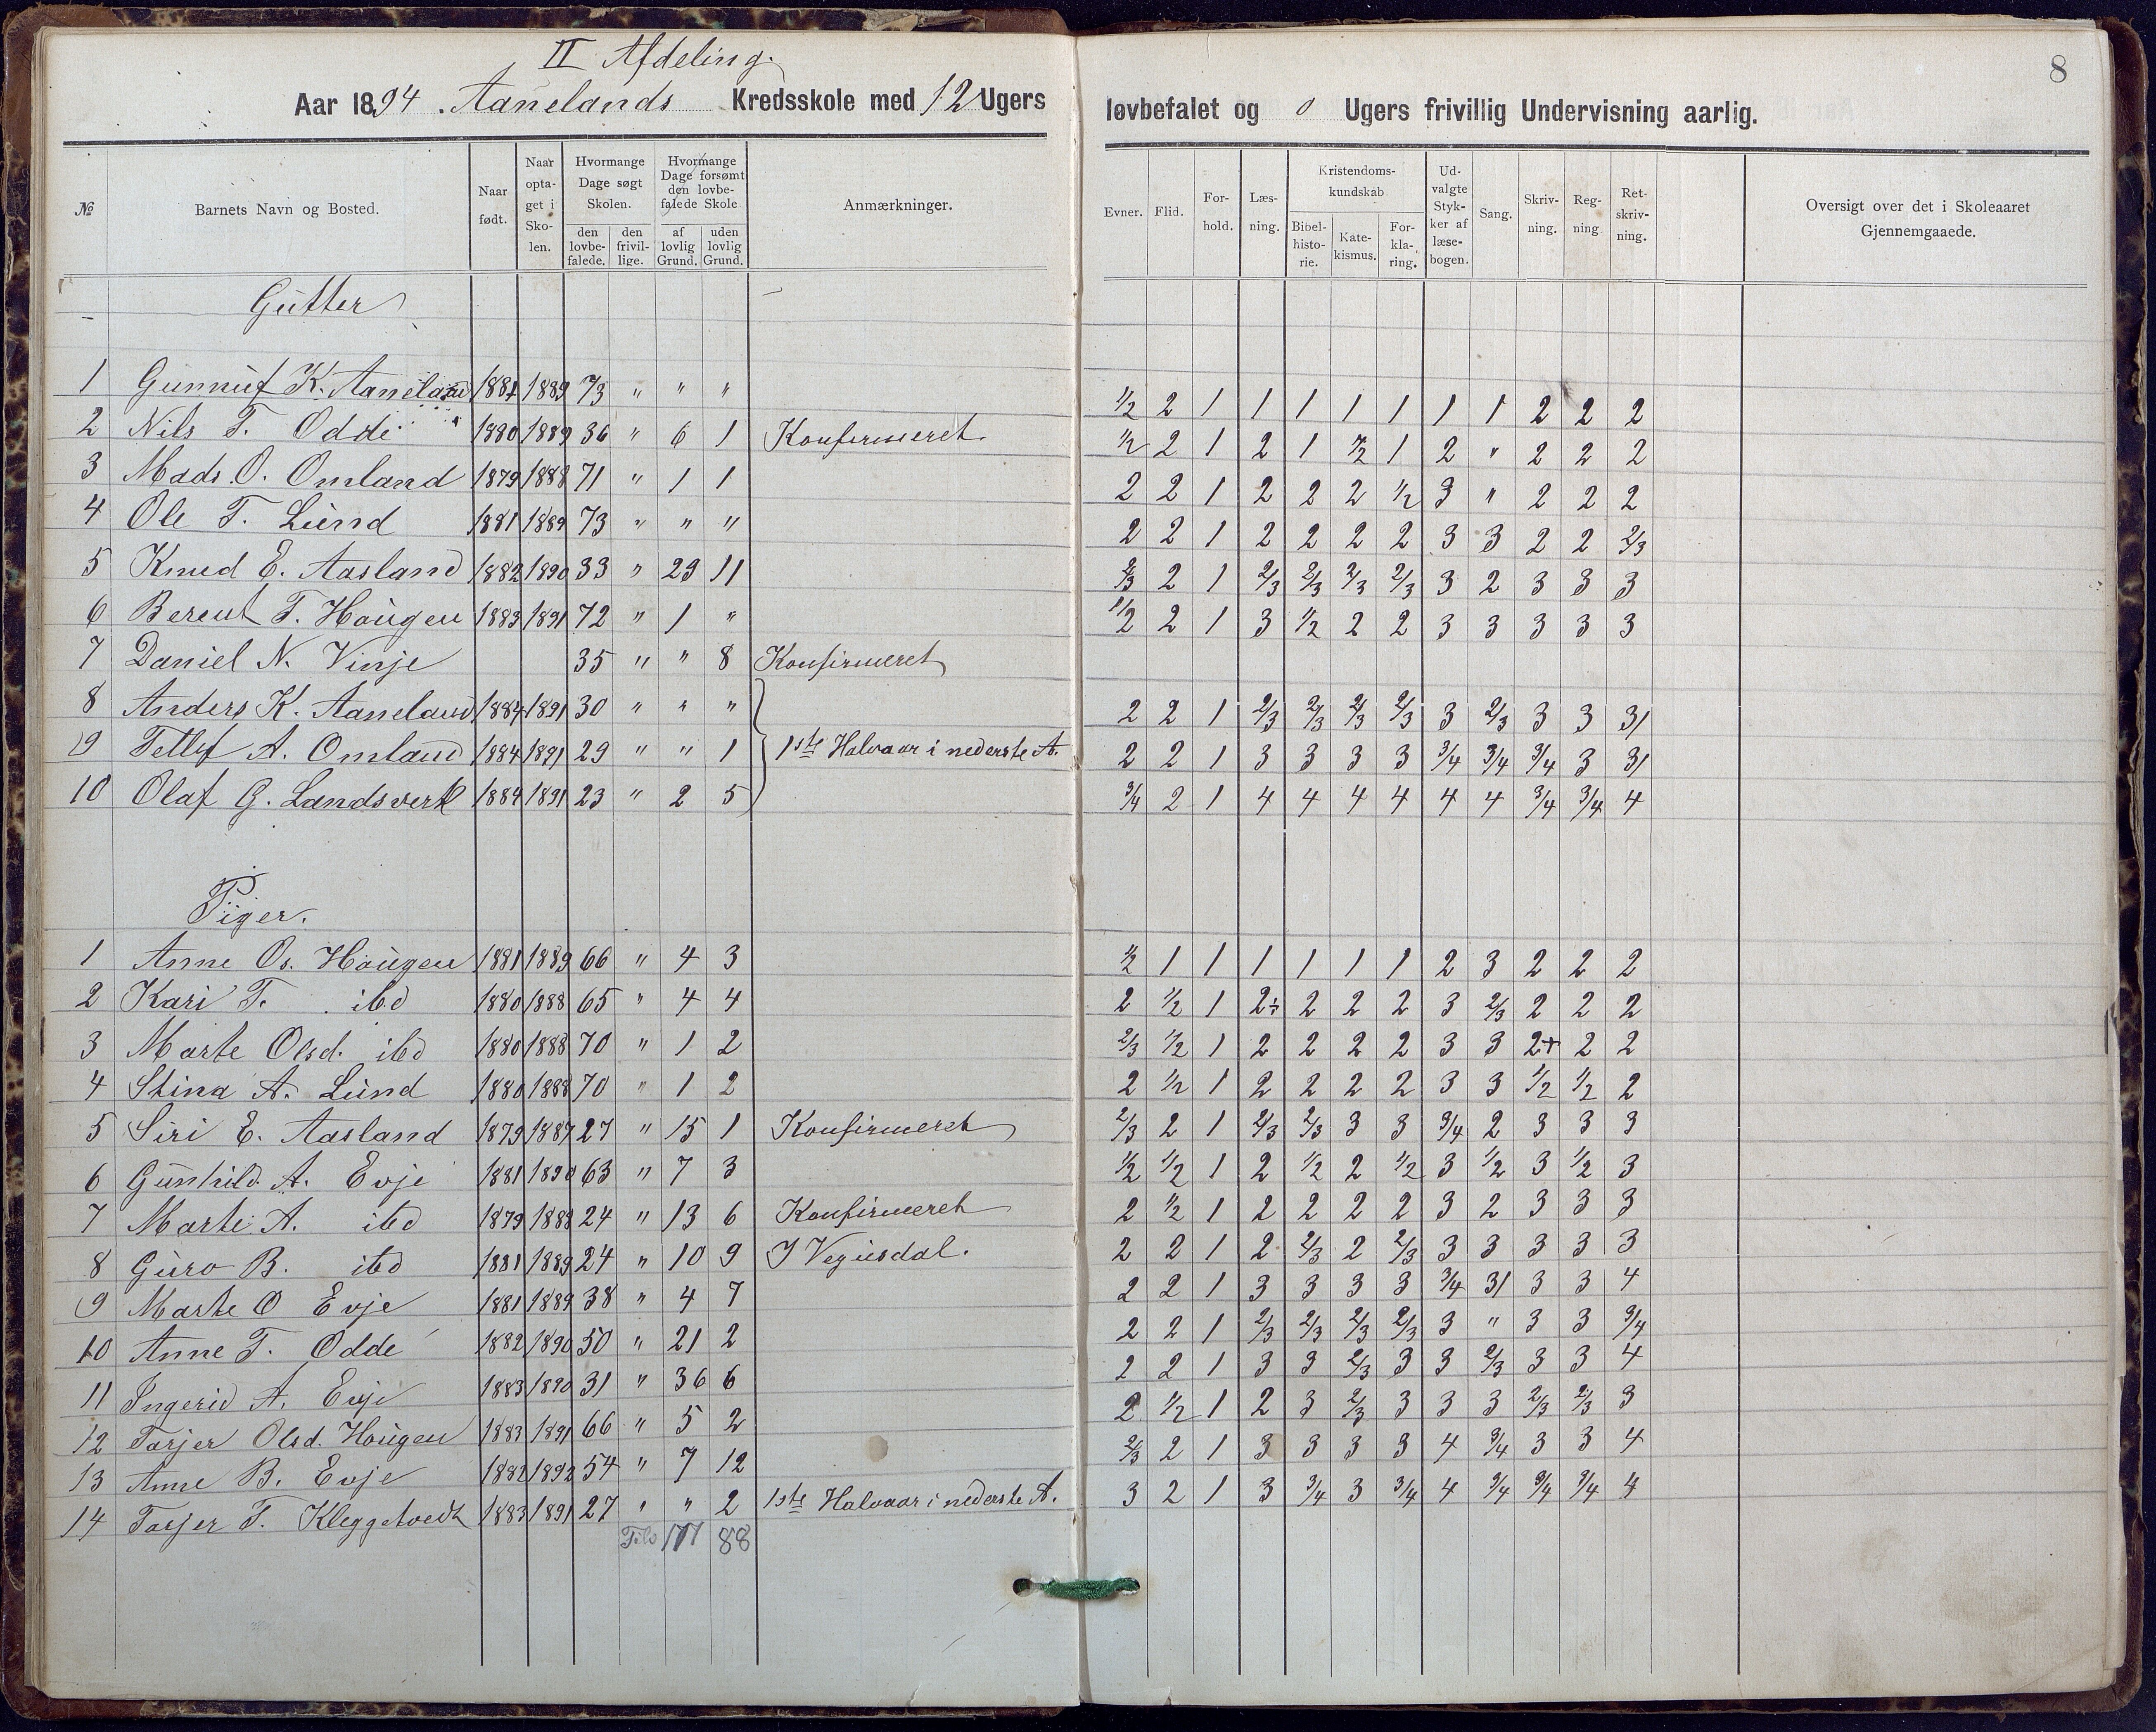 8
II Afdeling.
Aar 1894. Aanelands Kredsskole med 12 Ugers løvbefalet og 0 Ugers frivillig Undervisning aarlig.
№ Barnets Navn og Bosted. Naar født. Naar opta-get i Sko-len. Hvormange Dage søgt Skolen. den lovbe-falede. den frivil-lige. Hvormange Dage forsømt den lovbe-falede Skole af lovlig Grund. uden lovlig Grund. Anmærkninger. Evner. Flid. For-hold. Læs-ning. Kristendoms-kundskab. Bibel-histo-rie. Kate-kismus. For-kla-ring. Ud-valgte Styk-ker af læse-bogen. Sang. Skriv-ning. Reg-ning Ret-skriv-ning. Oversigt over det i Skoleaaret Gjennemgaaede.
Gutter
1 Gunnuf K. Aaneland 1881 1889 73 " " " 1/2 2 1 1 1 1 1 1 1 2 2 2
2 Nils T. Odde 1880 1889 36 " 6 1 Konfirmeret 1/2 2 1 2 1 1/2 1 2 " 2 2 2
3 Mads O. Omland 1879 1888 71 " 1 1 2 2 1 2 2 2 1/2 3 " 2 2 2
4 Ole T. Lund 1881 1889 73 " " " 2 2 1 2 2 2 2 3 3 2 2 2/3
5 Knud E. Aasland 1882 1890 33 " 29 11 2/3 2 1 2/3 2/3 2/3 2/3 3 2 3 3 3
6 Berent T. Haugen 1883 1891 72 " 1 " 1/2 2 1 3 1/2 2 2 3 3 3 3 3
7 Daniel N. Vinje 35 " " 8 Konfirmeret
8 Anders K. Aaneland 1884 1891 30 " " " 2 2 1 2/3 2/3 2/3 2/3 3 2/3 3 3 31
9 Tellef A. Omland 1884 1891 29 " " 1 1ste Halvaar i nederste A. 2 2 1 3 3 3 3 3/4 3/4 3/4 3 31
10 Olaf G. Landsverk 1884 1891 23 " 2 5 3/4 2 1 4 4 4 4 4 4 3/4 3/4 4
Piger.
1 Anne Os. Haugen 1881 1889 66 " 4 3 1/2 1 1 1 1 1 1 2 3 2 2 2
2 Kari T. ibd 1880 1888 65 " 4 4 2 1/2 1 2÷ 2 2 2 3 2/3 2 2 2
3 Marte Olsd. ibd 1880 1888 70 " 1 2 2/3 1/2 1 2 2 2 2 3 3 2+ 2 2
4 Stina A. Lund 1880 1888 70 " 1 2 2 1/2 1 2 2 2 2 3 3 1/2 1/2 2
5 Siri E. Aasland 1879 1887 27 " 15 1 Konfirmeret 2/3 2 1 2/3 2/3 3 3 3/4 2 3 3 3
6 Gunhild A. Evje 1881 1890 63 " 7 3 1/2 1/2 1 2 1/2 2 1/2 3 1/2 3 1/2 3
7 Marte A. ibd 1879 1888 24 " 13 6 Konfirmeret 2 1/2 1 2 2 2 2 3 2 3 3 3
8 Guro B. ibd 1881 1889 24 " 10 9 I Vegusdal. 2 2 1 2 2/3 2 2/3 3 3 3 3 3
9 Marte O Evje 1881 1889 38 " 4 7 2 2 1 3 3 3 3 3/4 31 3 3 4
10 Anne T. Odde 1882 1890 50 " 21 2 2 2 1 2/3 2/3 2/3 2/3 3 " 3 3 3/4
11 Ingerid A. Evje 1883 1890 31 " 36 6 2 2 1 3 3 2/3 3 3 2/3 3 3 4
12 Tarjer Olsd. Haugen 1883 1891 66 " 5 2 2 1/2 1 2 3 2/3 3 3 3 2/3 2/3 3
13 Anne B. Evje 1882 1892 54 " 7 12 2/3 2 1 3 3 3 3 4 3/4 3 3 4
14 Tarjer T. Kleggetvedt 1883 1891 27 " " 2 1ste Halvaar i nederste A. 3 2 1 3 3/4 3 3/4 4 3/4 3/4 3/4 4
88